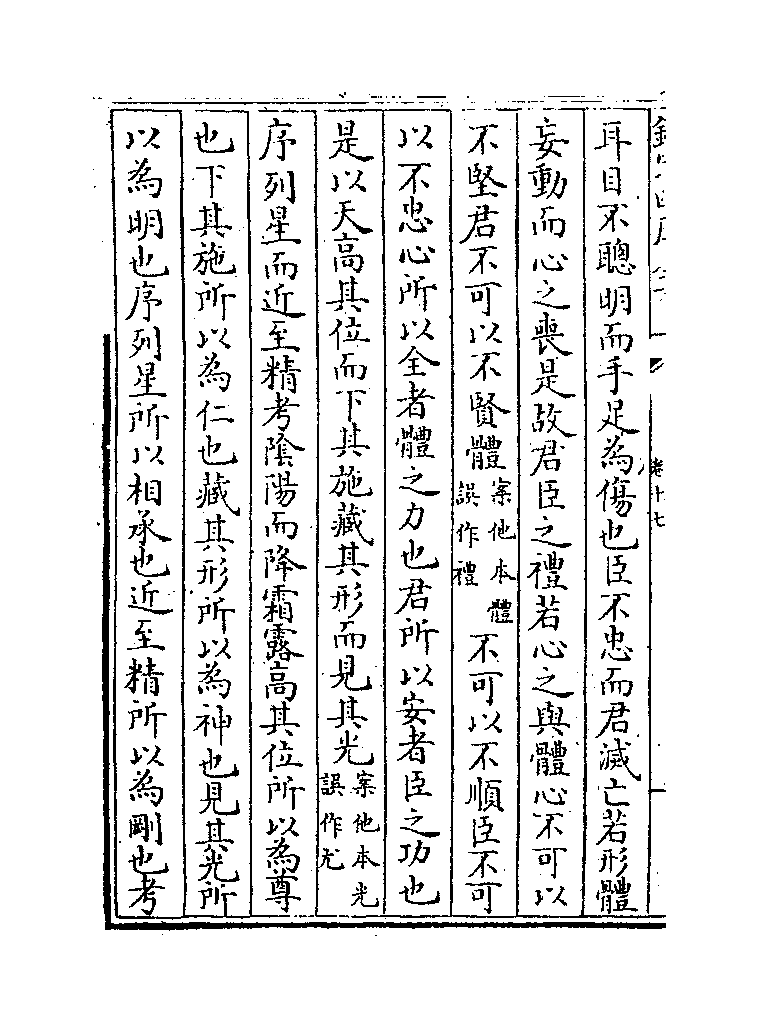 耳目不聰明而手足為傷也臣不忠而君滅亡若形體
妄動而心之喪是故君臣之禮若心之與體心不可以
不堅君不可以不賢體案他本體誤作禮不可以不順臣不可
以不忠心所以全者體之力也君所以安者臣之功也
是以天高其位而下其施藏其形而見其光案他本光誤作尤
序列星而近至精考陰陽而降霜露高其位所以為尊
也下其施所以為仁也藏其形所以為神也見其光所
以為明也序列星所以相承也近至精所以為剛也考
卷十七